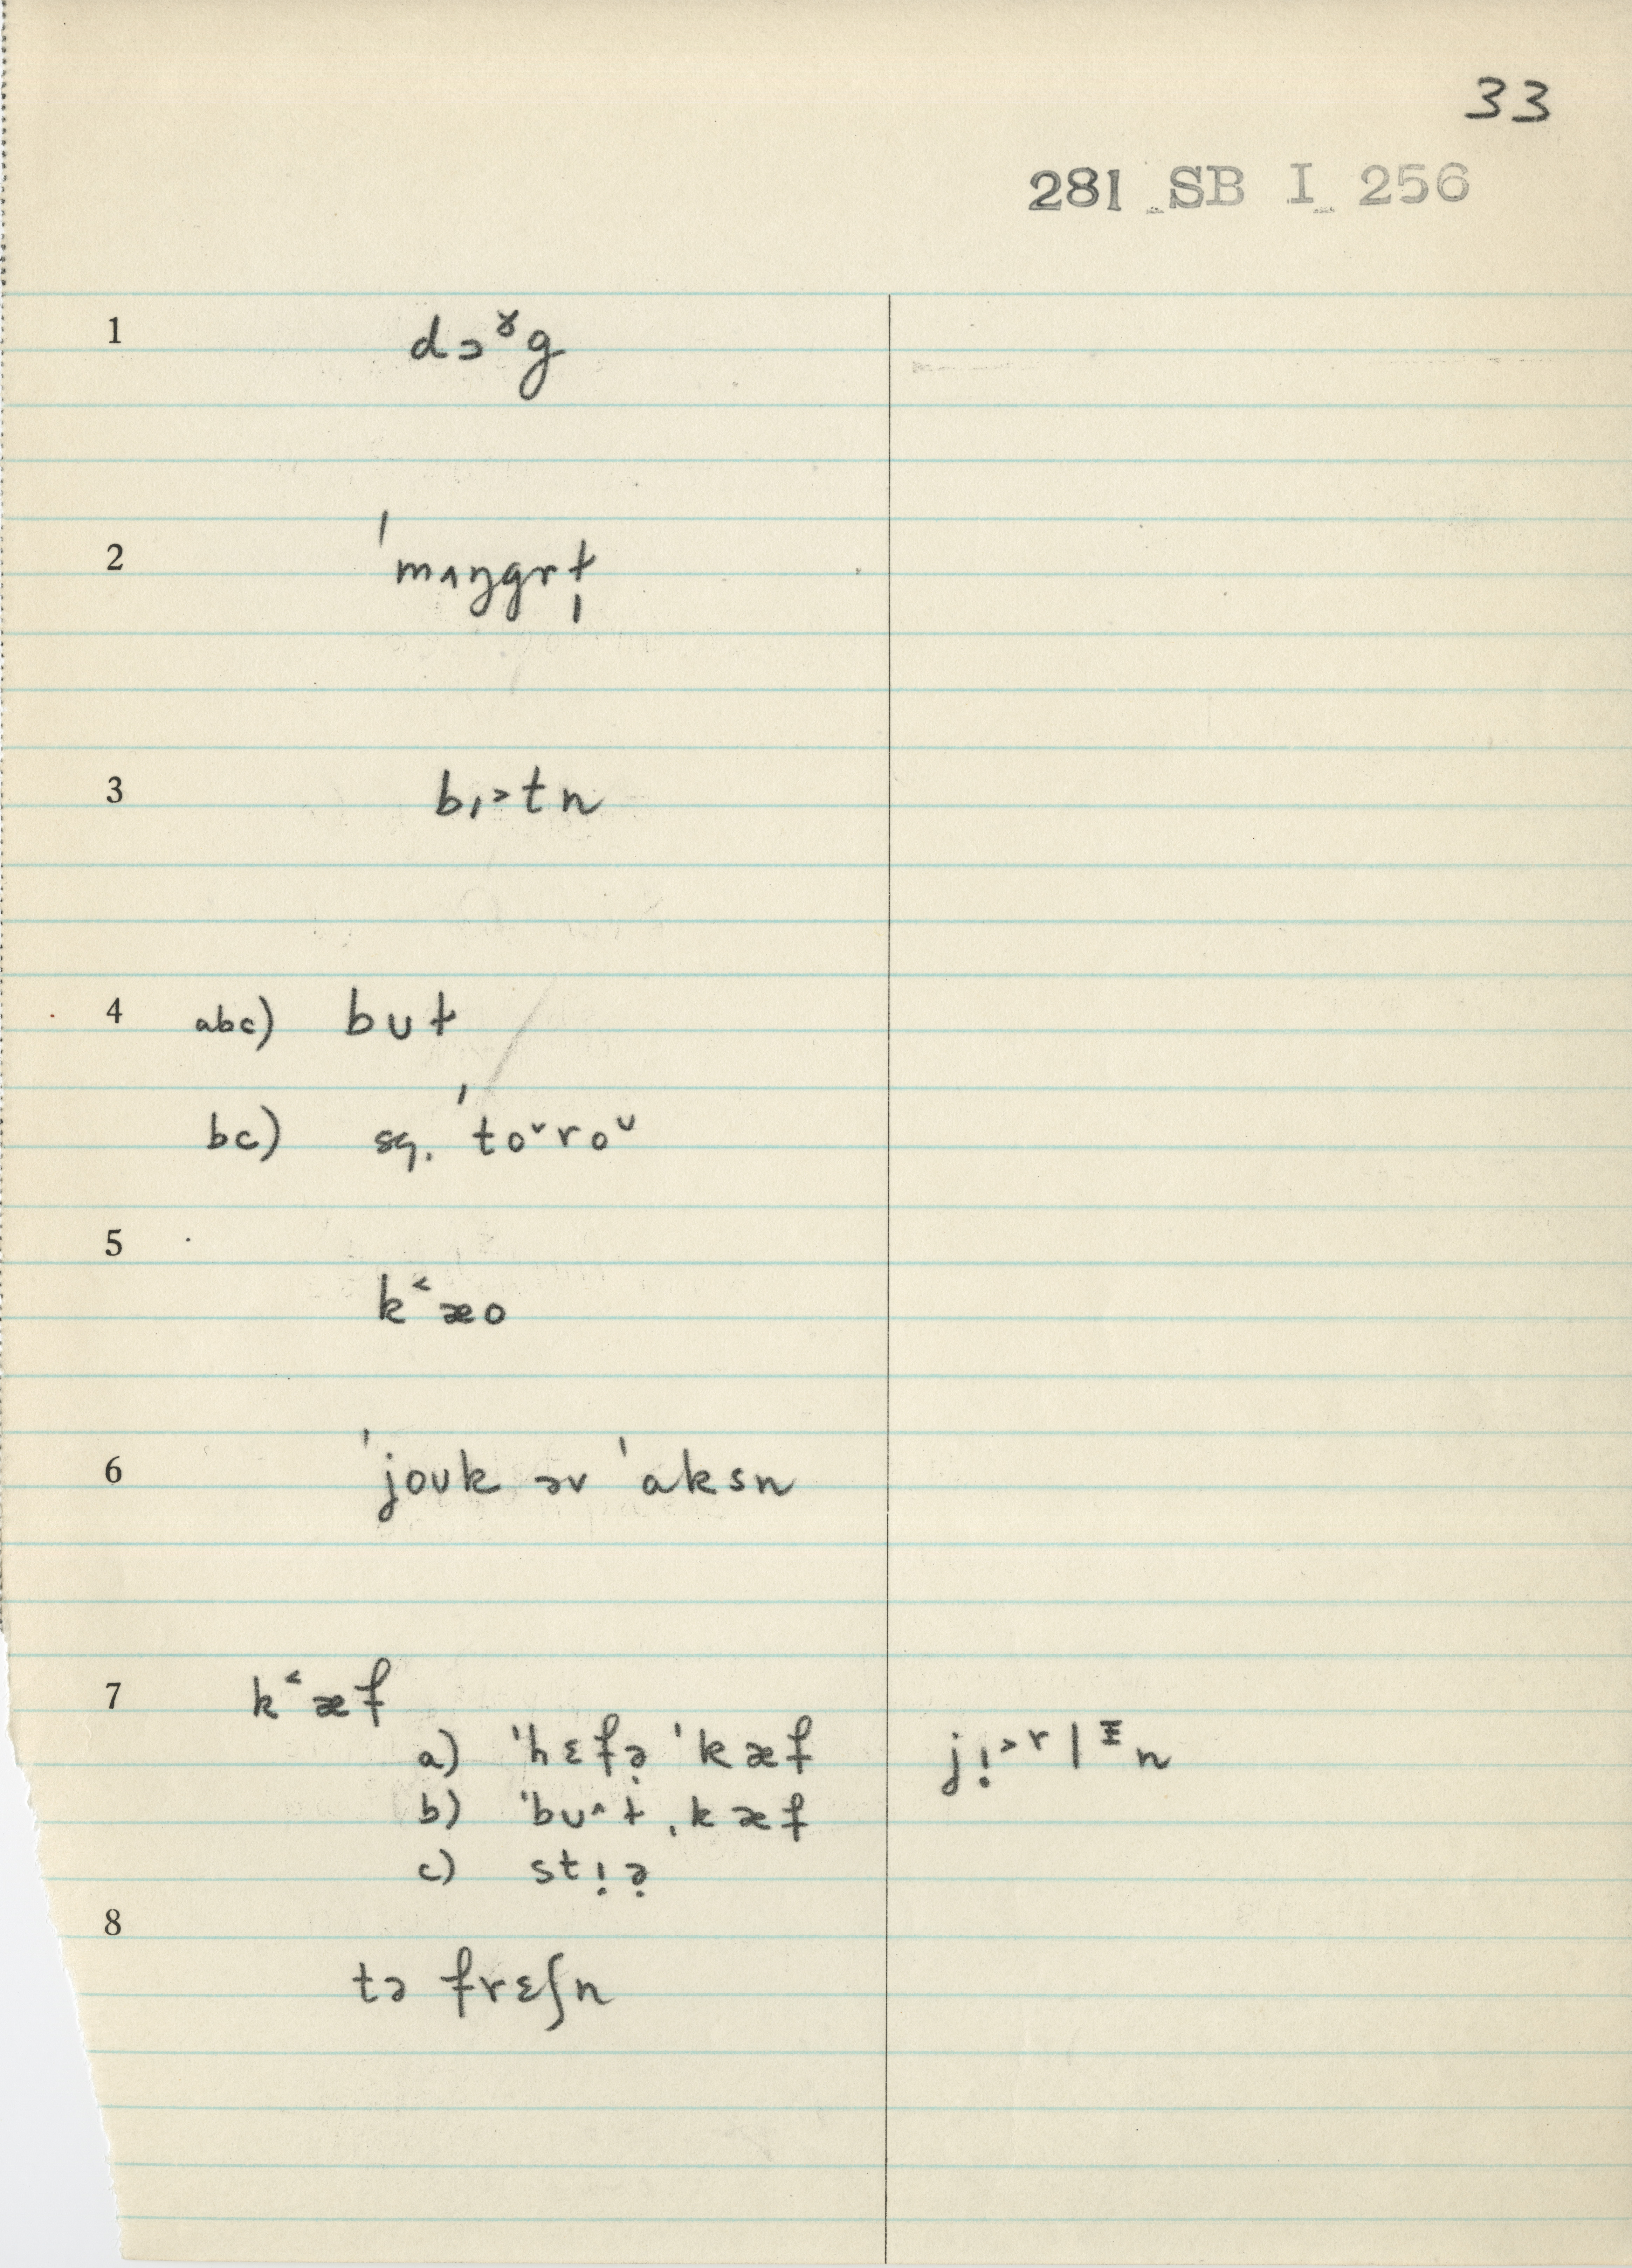 33
281 SB I 256
1 dɔˠg
2 ˈmʌŋgrɫ̩
3 bɪ˃tn
4 abc) bʊɫ
bc) sq. ˈtoᵛroᵛ
5 k˂æo
6 ˈjoʊk əv ˈaksn
7 k˂æf
a) ˈhɛfə̣ ˈkæf jɪ̣˃ʳlᵻn
b) ˈbʊ˄ɫˌkæf
c) stɪ̣ə̣
8 tə frɛʃn